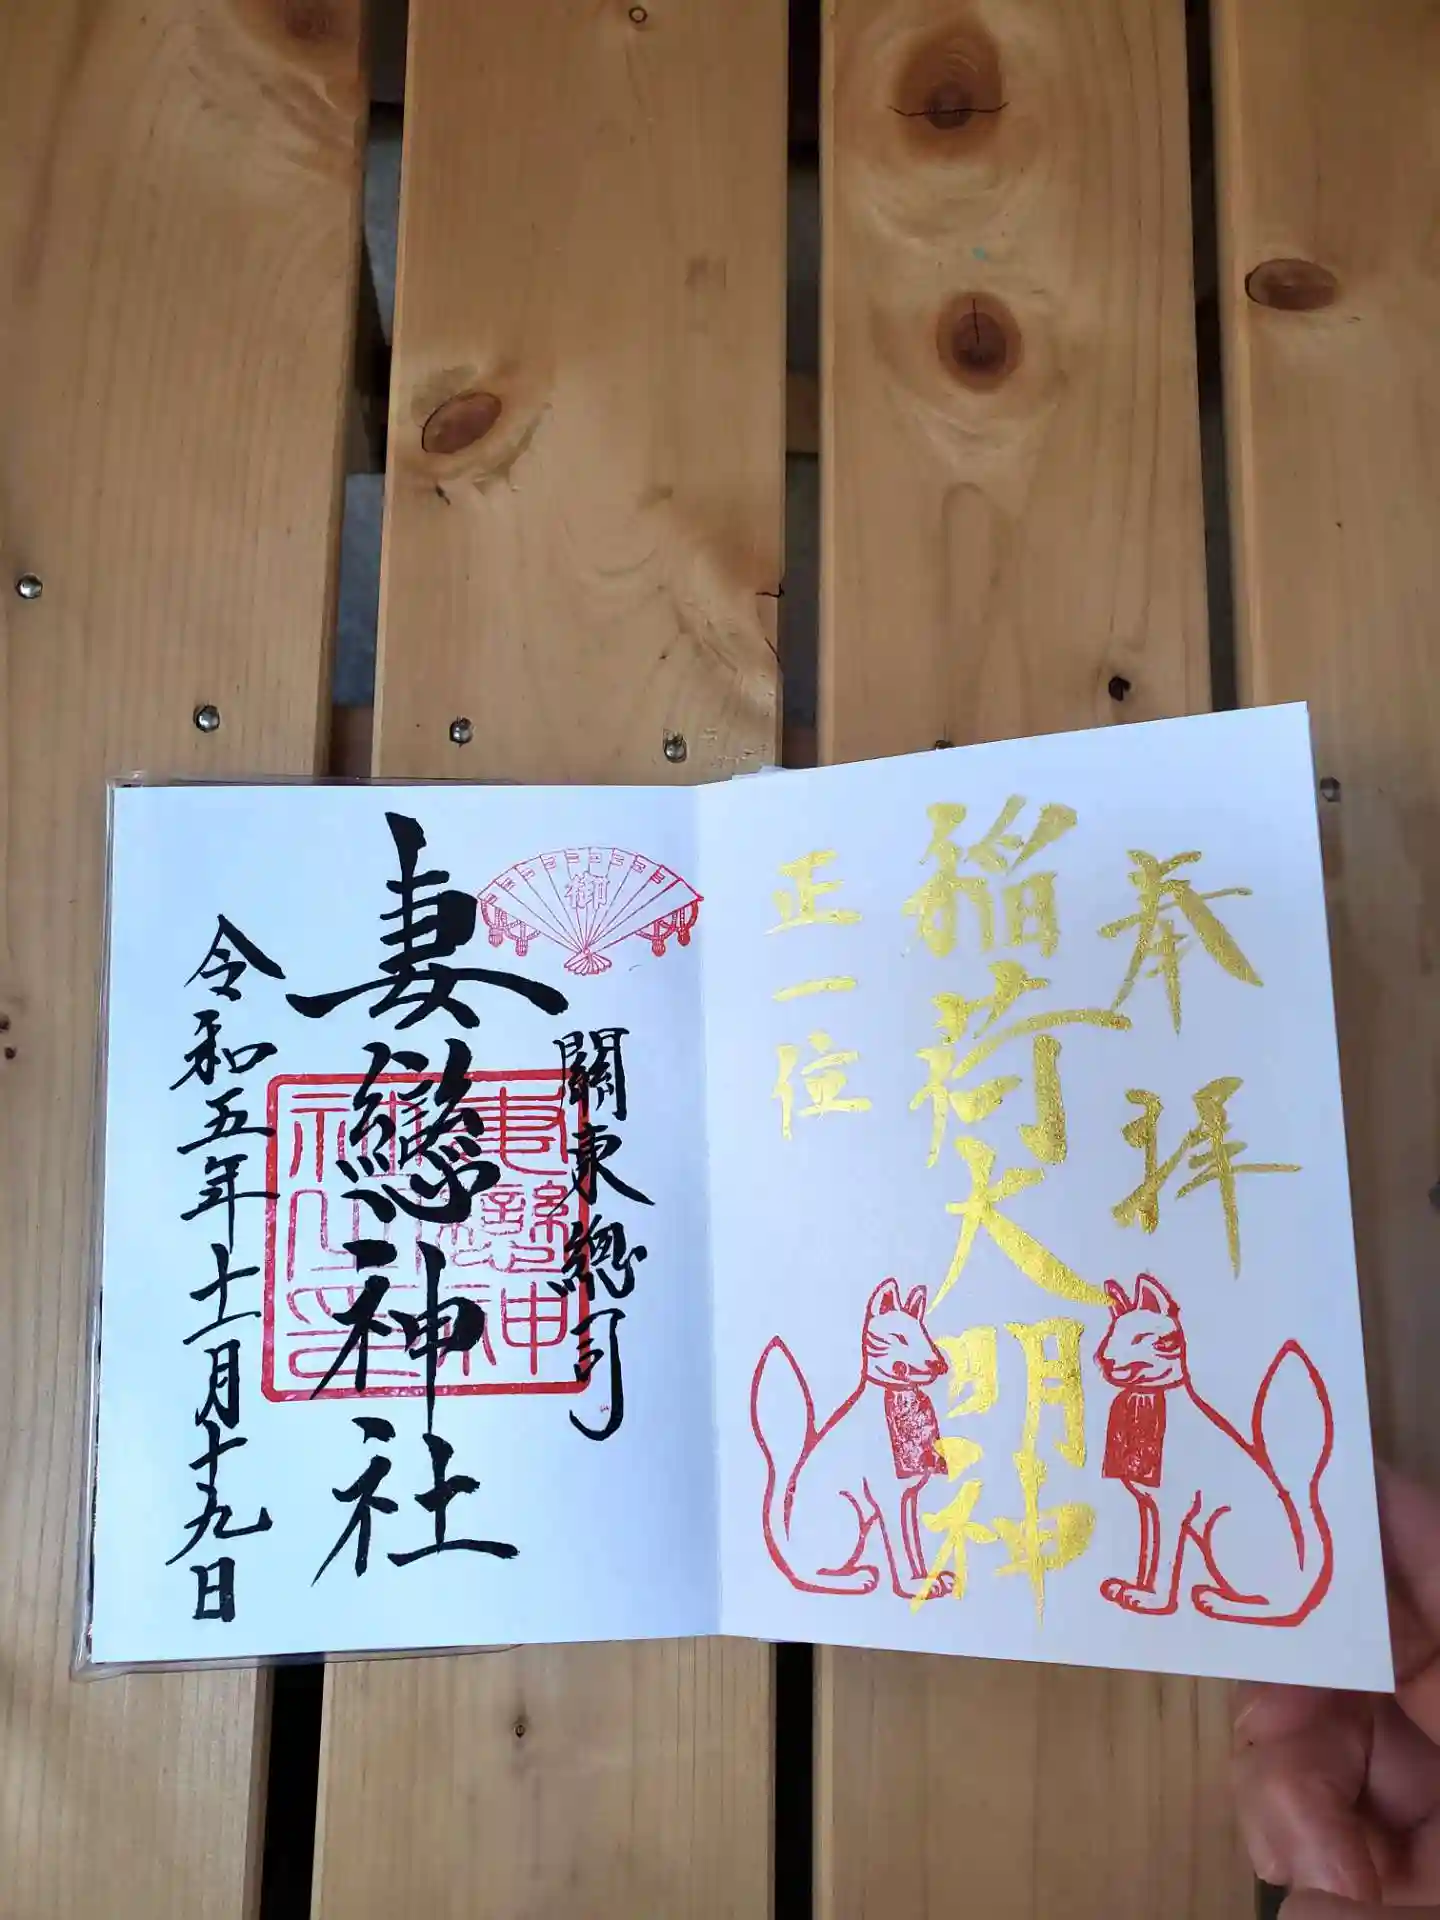 奉拝
稲荷大明神
正一位
御
關東總司
妻戀神社
妻戀神社之印
令和五年十一月十九日